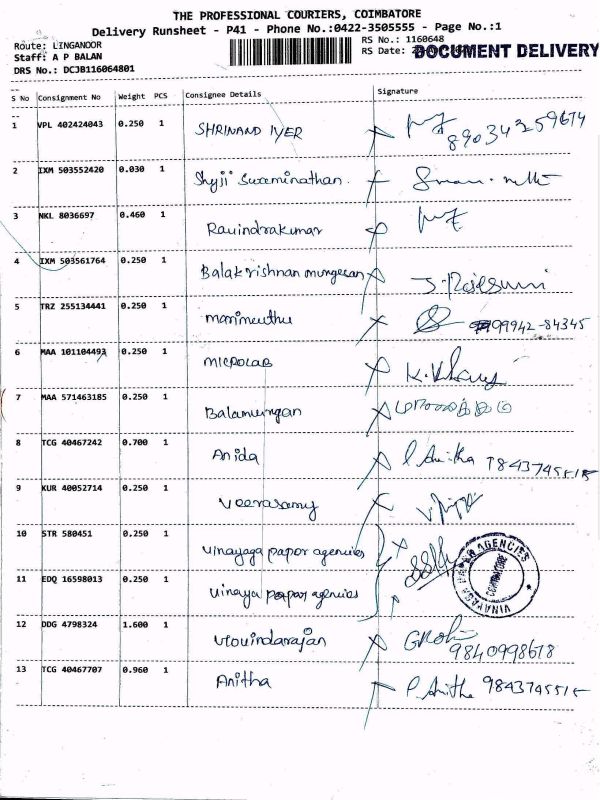 THE PROFESSIONAL COURIERS, COIMBATORE
Delivery Runsheet - P41 - Phone No.:0422-3505555 - Page No.:1
Route: LINGANOOR
RS No.: 1160648
Staff: A P BALAN
RS Date:
DOCUMENT DELIVERY
DRS No.: DCJB116064801
S No Consignment No Weight PCS Consignee Details Signature
1 VPL 402424043 0.250 1 SHRINAND IYER
2 IXM 503552420 0.030 1 Shyji Swaminathan.
3 NKL 8036697 0.460 1 Ravindrakumar
4 IXM 503561764 0.250 1 Balakrishnan murugesan
5 TRZ 255134441 0.250 1 manimuthu 99942-84345
6 MAA 101104493 0.250 1 MICROLAB
7 MAA 571463185 0.250 1 Balamurugan
8 TCG 40467242 0.700 1 Anida P. Anitha 9843745515
9 KUR 40052714 0.250 1 Veerasamy
10 STR 580451 0.250 1 Vinayaga papar agencies
11 EDQ 16598013 0.250 1 Vinaya papar agencies
VINAYAGA PAPER AGENCIES
COIMBATORE
12 DDG 4798324 1.600 1 9840998618
13 TCG 40467707 0.960 1 Anitha P. Anitha 9843745515